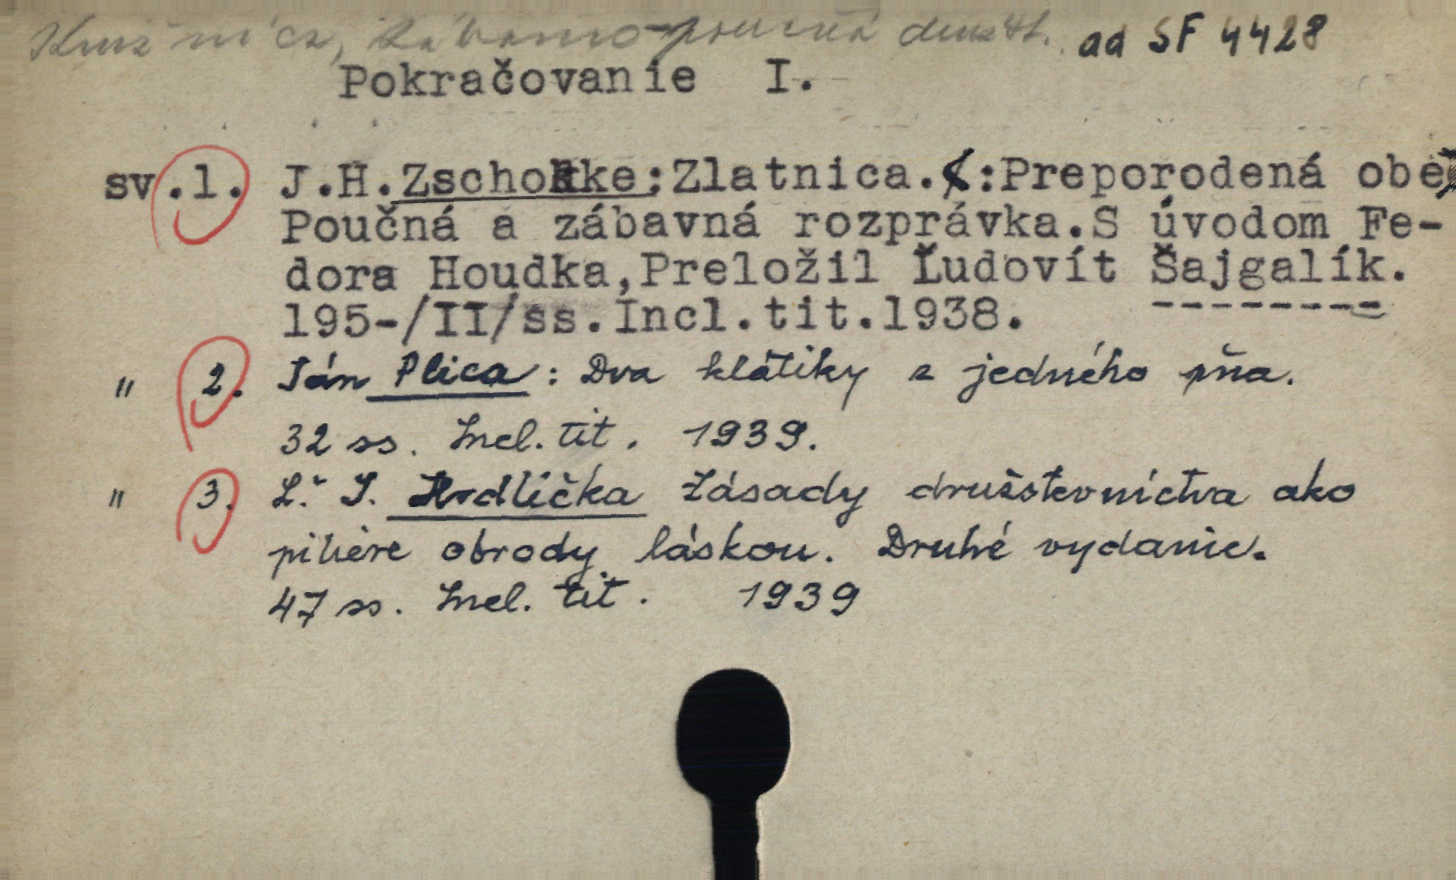 Knižnica, zábavno-poučná družst. ad SF 4428
Pokračovanie I.
sv.1. J.H.Zschokke:Zlatnica.:Preporodená obec
Poučná a zábavná rozprávka.S úvodom Fe-
dora Houdka,Preložil Ľudovít Šajgalík.
195-/II/ss.Incl.tit.1938.
" 2. Ján Plica: Dva klátiky z jedného pňa.
32 ss. Incl. tit. 1939.
" 3. L. J. Hrdlička Zásady družstevníctva ako
piliere obrody láskou. Druhé vydanie.
47 ss. Incl. tit. 1939